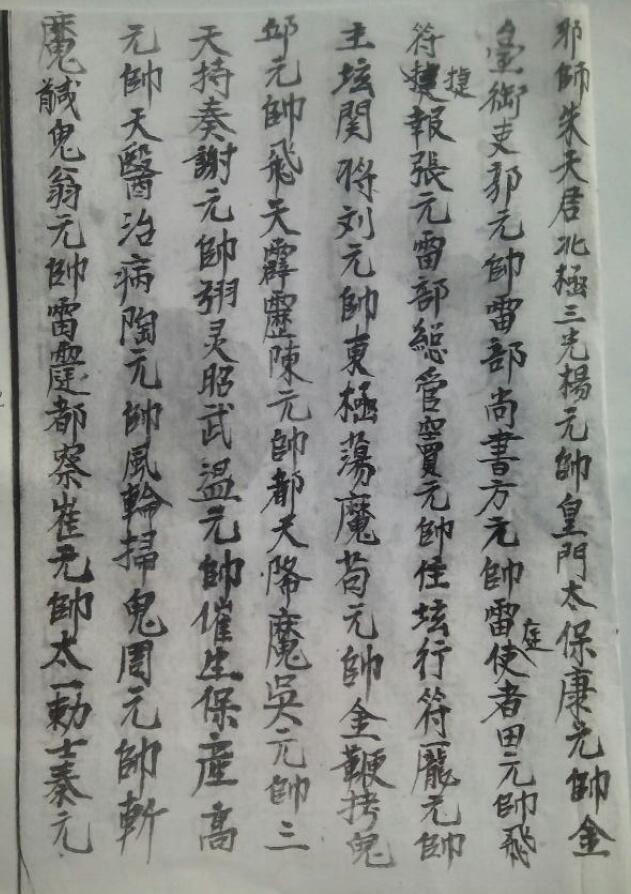 邪師朱天君北極三光楊元帥皇門太保康元帥金
臺衙吏郭元帥雷部尚書方元帥雷霆使者田元帥飛
符捷報張元雷部総管賈元帥住坛行符龐元帥
主坛関将刘元帥東極蕩魔苟元帥金鞭拷鬼
邱元帥飛天霹靂陳元帥都天降魔吳元帥三
天持奏謝元帥翊灵昭武温元帥催生保産高
元帥天醫治病陶元帥風輪掃鬼周元帥斬
魔馘鬼翁元帥雷霆都察崔元帥太一勅士秦元